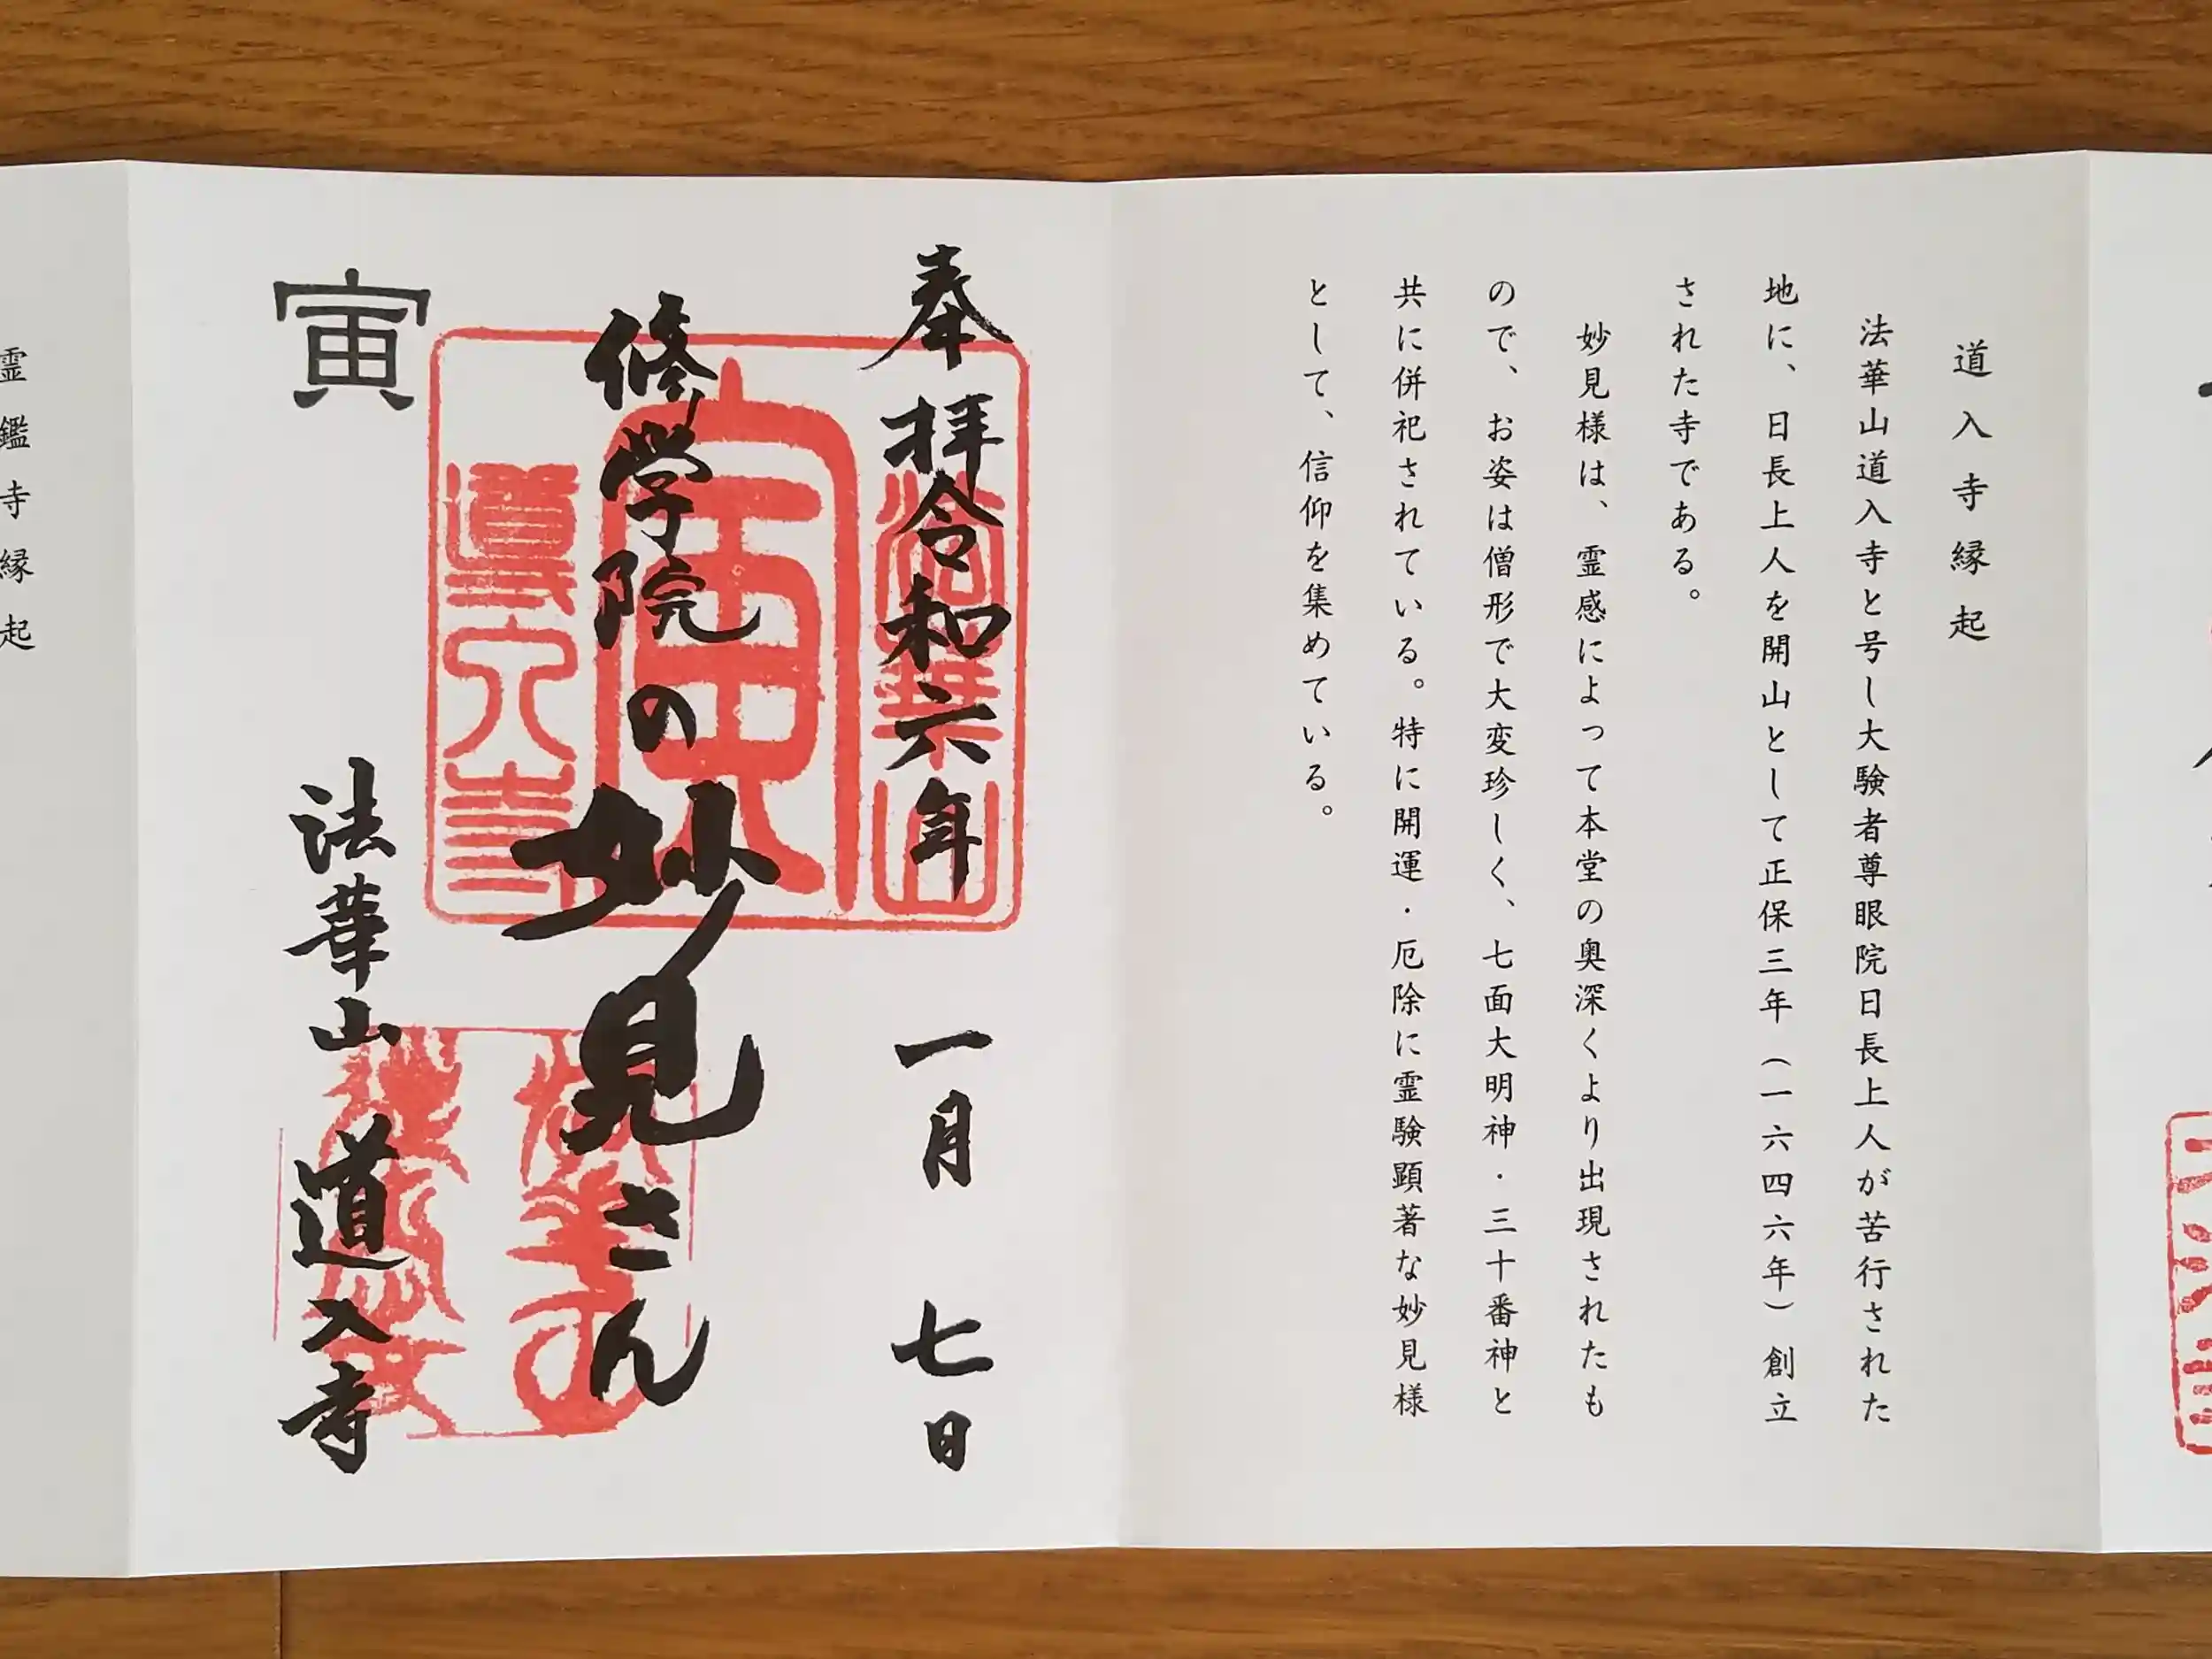 道入寺縁起
法華山道入寺と号し大験者尊眼院日長上人が苦行された
地に、日長上人を開山として正保三年（一六四六年）創立
された寺である。
妙見様は、霊感によって本堂の奥深くより出現されたも
ので、お姿は僧形で大変珍しく、七面大明神・三十番神と
共に併祀されている。特に開運・厄除に霊験顕著な妙見様
として、信仰を集めている。
奉拝令和六年 一月 七日
法華山
修学院の妙見さん
寅
道入寺
寅
法華山 道入寺
霊鑑寺縁起